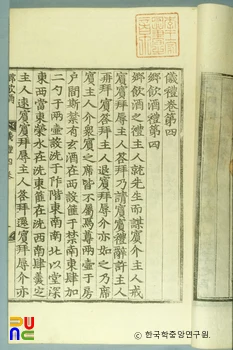 儀禮卷第四
鄉飲酒禮第四
鄉飲酒之禮主人就先生而謀賓介主人戒
賓賓拜辱主人答拜乃請賓賓禮辭許主人
再拜賓答拜主人退賓拜辱介亦如之乃席
賓主人介眾賓之席皆不屬焉尊兩壺于房
戶間斯禁有玄酒在西設篚于禁南東肆加
二勺于兩壺設洗于阼階東南南北以堂深
東西當東榮水在洗東篚在洗西南肆羹定
主人速賓賓拜辱主人答拜還賓拜辱介亦
鄉飲酒
ⓒ 한국학중앙연구원